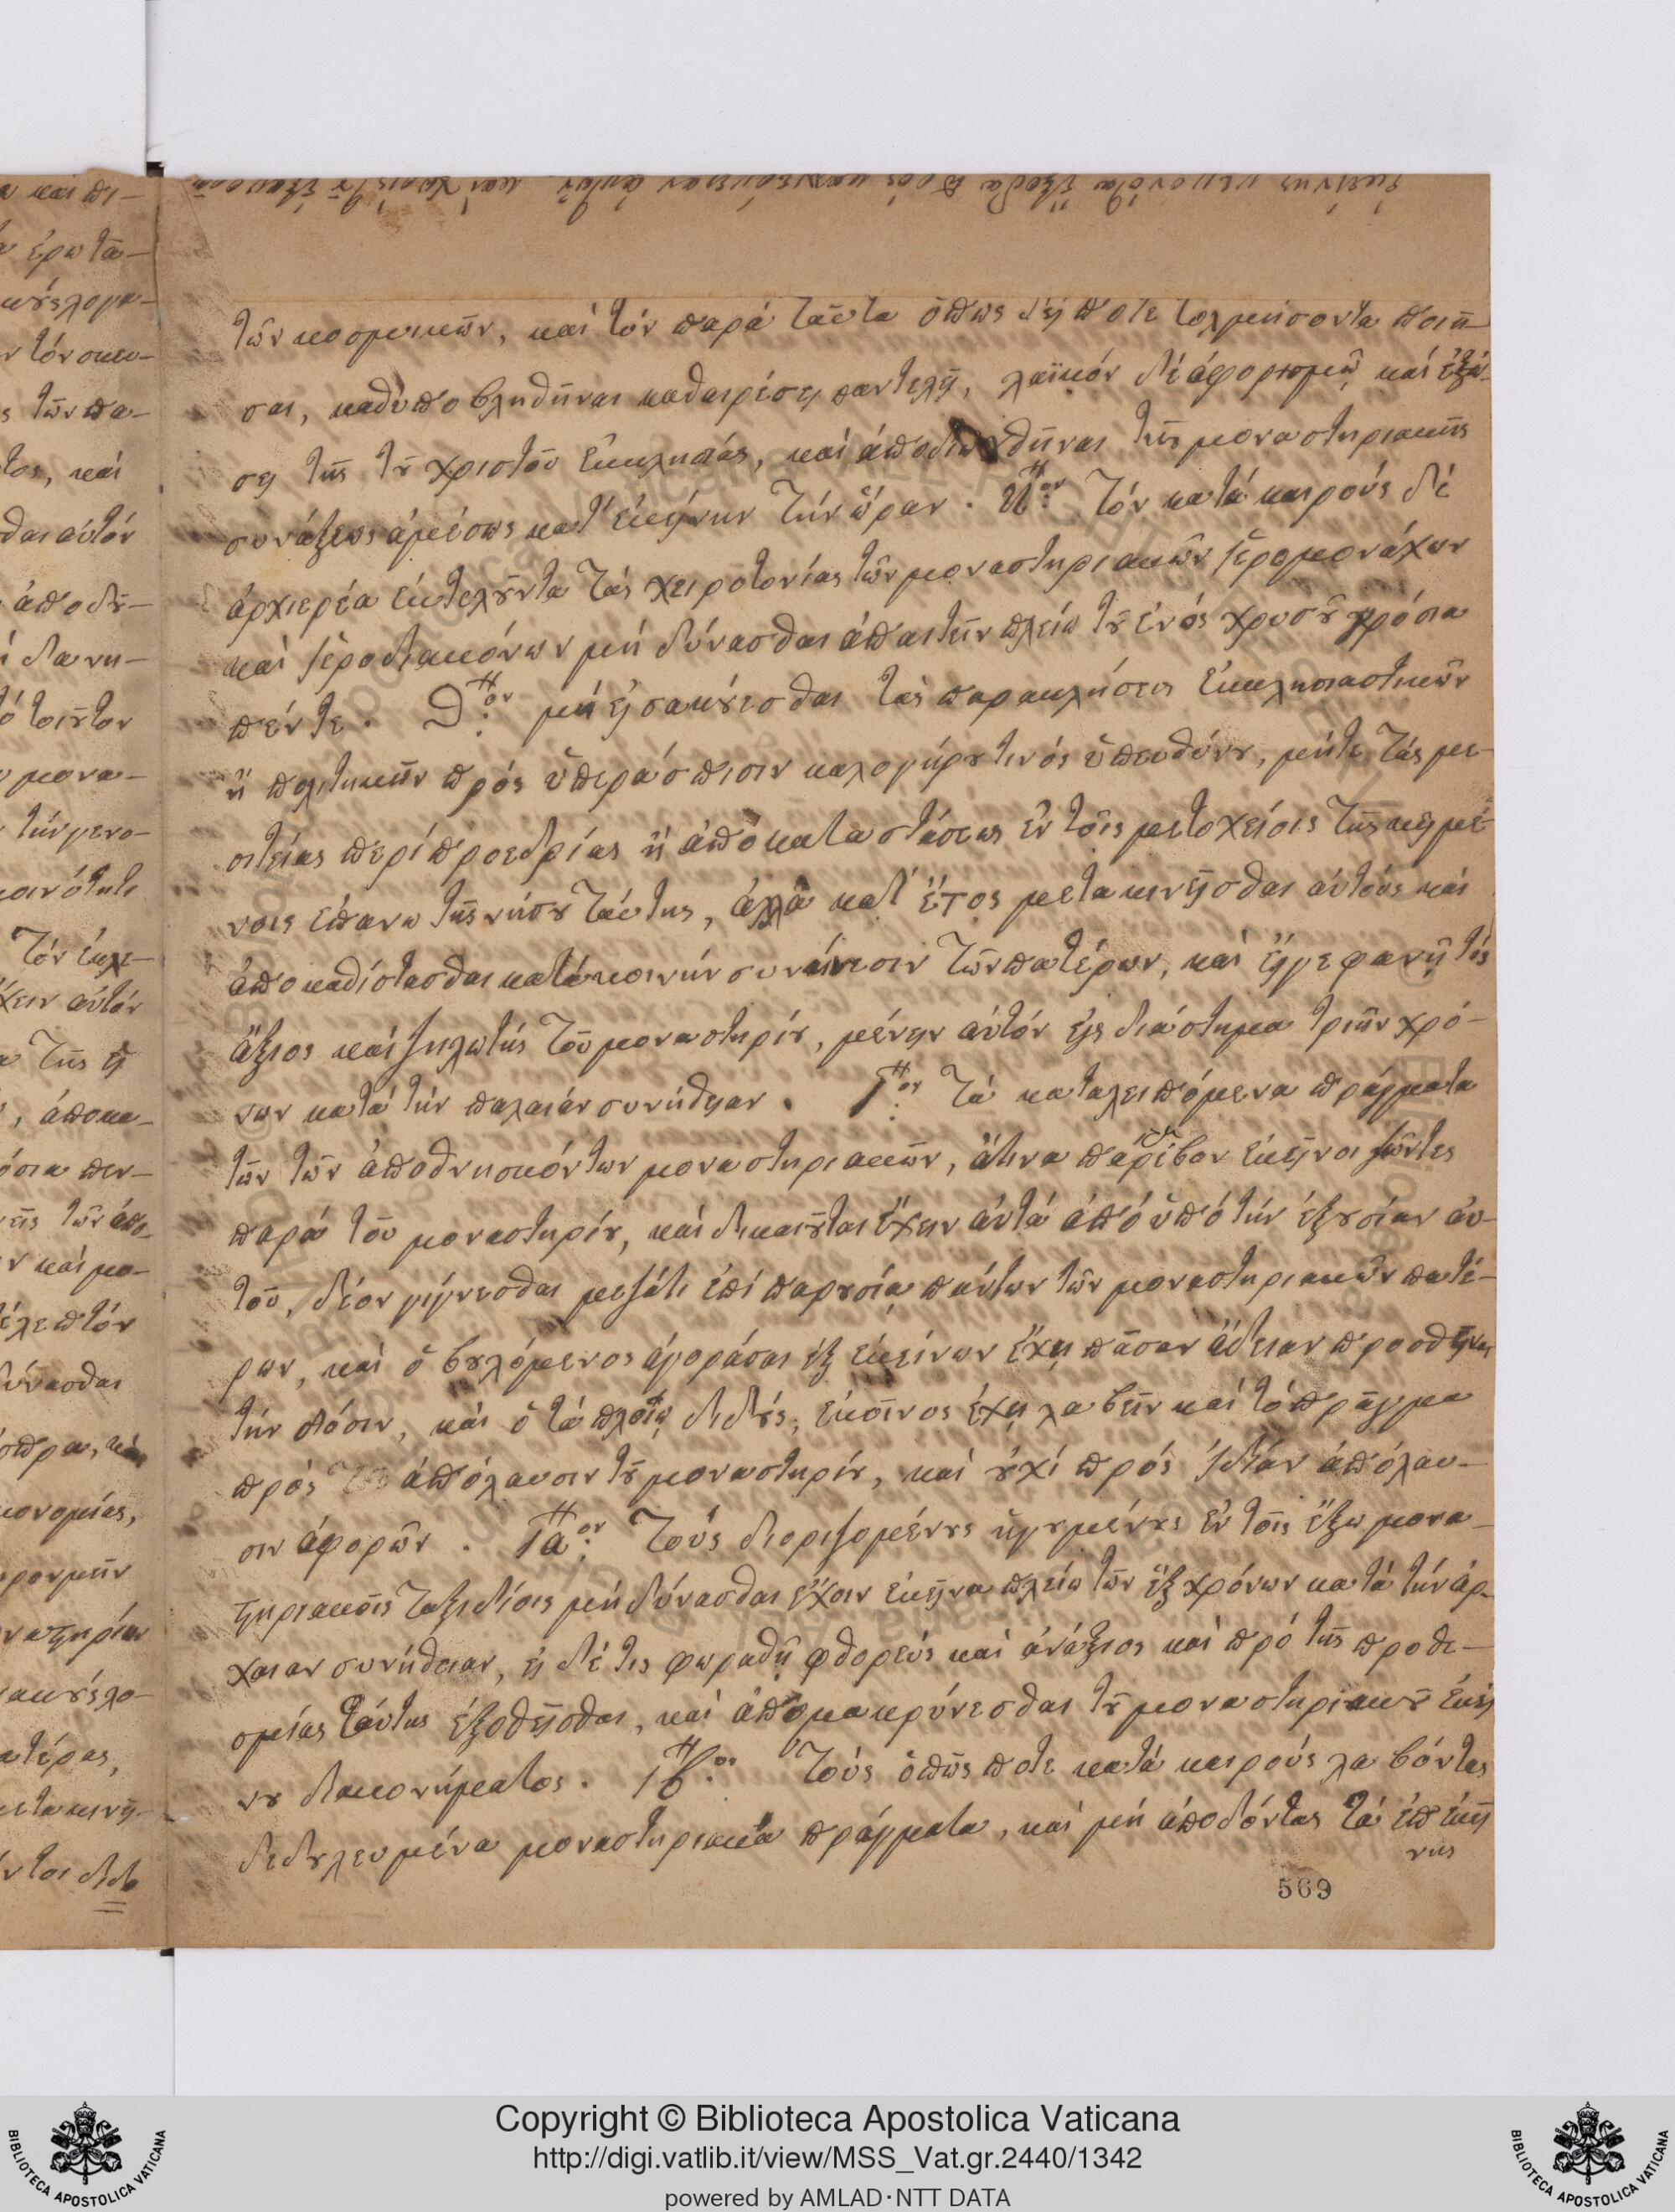 τῶν κοσμικῶν, καὶ τὸν παρὰ ταῦτα ὅπως δή ποτε τολμήσοντα ποιῆ-
σαι, καθυποβληθῆναι καθαιρέσει παντελῇ, λαϊκὸν δὲ ἀφορισμῷ καὶ ἐξώ-
σει τῆς τοῦ χριστοῦ ἐκκλησίας, καὶ ἀποδιωχθῆναι τῆς μοναστηριακῆς
συνάξεως ἀμέσως κατ' ἐκείνην τὴν ὥραν. Η:ον Τὸν κατὰ καιροὺς δὲ
ἀρχιερέα ἐκτελοῦντα τὰς χειροτονίας τῶν μοναστηριακῶν ἱερομονάχων
καὶ ἱεροδιακόνων μὴ δύνασθαι ἀπαιτεῖν πλείω τοῦ ἑνὸς χρυσοῦ γρόσια
πέντε. Θ:ον μὴ εἰσακούεσθαι τὰς παρακλήσεις ἐκκλησιαστικῶν
ἢ πολιτικῶν πρὸς ὑπεράσπισιν καλογήρου τινός ὑπευθύνου, μήτε τὰς με-
σιτείας περὶ προεδρίας ἢ ἀποκαταστάσεως ἐν τοῖς μετοχείοις τῆς κειμέ-
νοις ἐπάνω τῆς νήσου ταύτης, ἀλλὰ κατ' ἔτος μετακινεῖσθαι αὐτοὺς καὶ
ἀποκαθίστασθαι κατὰ κοινὴν συναίνεσιν τῶν πατέρων, καὶ εἴγε φανῇ τὶς
ἄξιος καὶ ζηλωτὴς τοῦ μοναστηρίου, μένειν αὐτὸν εἰς διάστημα τριῶν χρό-
νων κατὰ τὴν παλαιὰν συνήθειαν. Ι:ον Τὰ καταλειπόμενα πράγματα
τῶν τῶν ἀποθνησκόντων μοναστηριακῶν, ἅτινα παρέλαβον ἐκεῖνοι ζῶντες
παρὰ τοῦ μοναστηρίου, καὶ δικαιοῦται ἔχειν αὐτὰ ἀπὸ ὑπὸ τὴν ἐξουσίαν αὐ-
τοῦ, δέον γίγνεσθαι μεζάτι ἐπὶ παρουσίᾳ πάντων τῶν μοναστηριακῶν πατέ-
ρων, καὶ ὁ βουλόμενος ἀγοράσαι ἐξ ἐκείνων ἔχει πᾶσαν ἄδειαν προσθεῖναι
τὴν δόσιν, καὶ ὁ τὰ πλείω διδούς, ἐκεῖνος ἔχει λαβεῖν καὶ τὸ πρᾶγμα
πρὸς ἀπόλαυσιν τοῦ μοναστηρίου, καὶ οὐχὶ πρὸς ἰδίαν ἀπόλαυ-
σιν ἀφορῶν. ΙΑ:ον Τοὺς διοριζομένους ἡγουμένους ἐν τοῖς ἔξω μονα-
στηριακοῖς ταξιδίοις μὴ δύνασθαι ἔχειν ἐκεῖνα πλείω τῶν ἓξ χρόνων κατὰ τὴν ἀρ-
χαίαν συνήθειαν, εἰ δέ τις φωραθῇ φθορεὺς καὶ ἀνάξιος καὶ πρὸ τῆς προθε-
σμίας ταύτης ἐξοθεῖσθαι, καὶ ἀπομακρύνεσθαι τοῦ μοναστηριακοῦ ἐκεί
νου διακονήματος. ΙΒ:ον Τοὺς ὁπῶς ποτε κατὰ καιροὺς λαβόντας
δεδουλευμένα μοναστηριακὰ πράγματα, καὶ μὴ ἀποδόντας τὰ ἐπ' ἐκεί
νης
569
Copyright © Biblioteca Apostolica Vaticana
http://digi.vatlib.it/view/MSS_Vat.gr.2440/1342
powered by AMLAD·NTT DATA
BIBLIOTECA APOSTOLICA VATICANA
BIBLIOTECA APOSTOLICA VATICANA